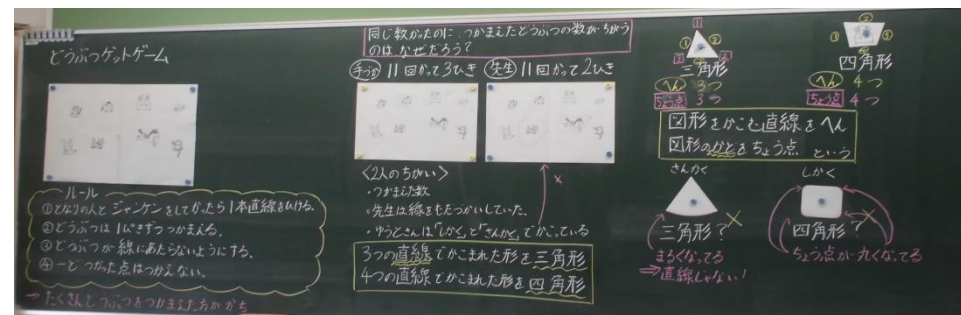 どうぶつゲットゲーム
ルール
①となりの人とジャンケンをしてかったら1本直線をひける。
②どうぶつは1ぴきずつつかまえる。
③どうぶつが線にあたらないようにする。
④一どつかった点はつかえない。
→たくさんどうぶつをつかまえた方がかち
同じ数かったのに、つかまえたどうぶつの数がちがう
のは、なぜだろう?
11回かって3びき
先生 11回かって2ひき
<2人のちがい>
・つかまえた数
・先生は線をむだづかいしていた。
・ゆうとさんは「しかく」と「さんかく」でかこっている
×
3つの直線でかこまれた形を三角形
4つの直線でかこまれた形を四角形
1
① ②
2 3
三角形
へん 3つ
ちょう点 3つ
②
① ③
四角形
へん 4つ
ちょう点 4つ
図形をかこむ直線をへん
図形のかどをちょう点 という
さんかく
三角形?
×
まるくなってる
⇒直線じゃない!
しかく
四角形?
×
ちょう点が丸くなってる